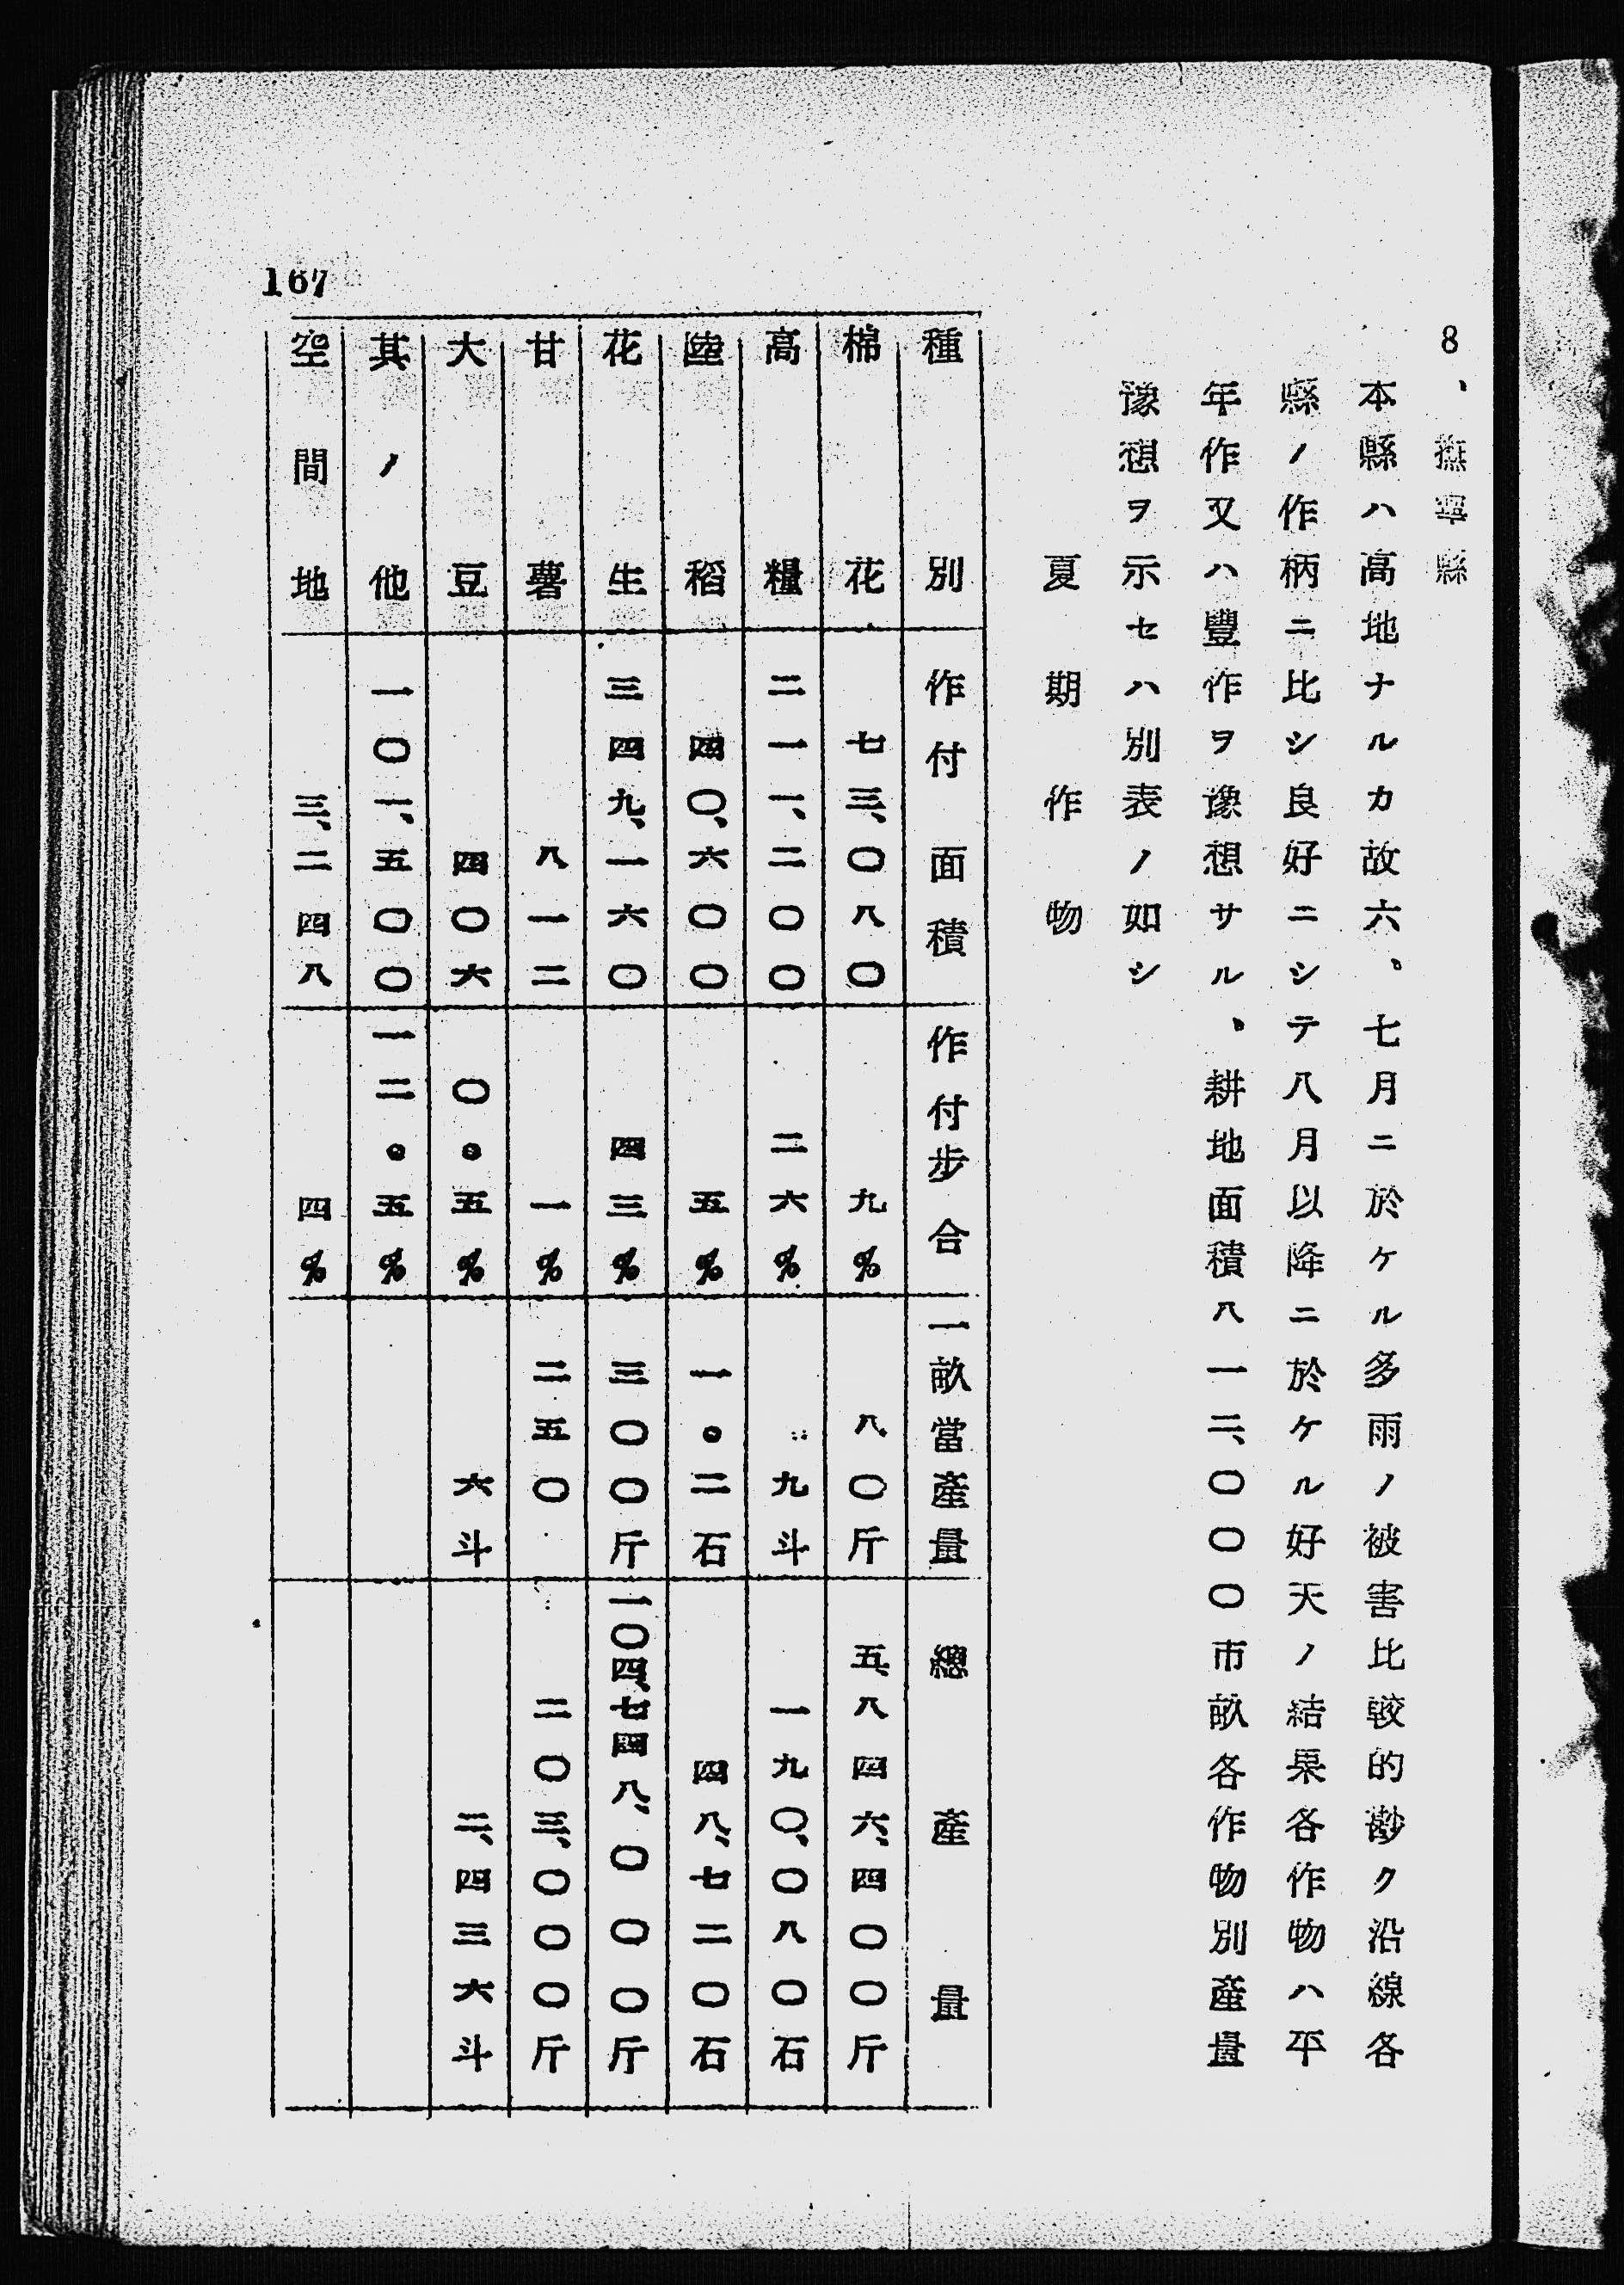 8、撫寧縣
本縣ハ高地ナルカ故六、七月ニ於ケル多雨ノ被害比較的尠ク沿線各
縣ノ作柄ニ比シ良好ニシテ八月以降ニ於ケル好天ノ結果各作物ハ平
年作又ハ豐作ヲ豫想サル、耕地面積八一二、〇〇〇市畝各作物別產量
豫想ヲ示セハ別表ノ如シ
夏期作物
種別 作付面積 作付步合 一畝當產量 總產量
棉花 七三、〇八〇 九% 八〇斤 五、八四六、四〇〇斤
高糧 二一一、二〇〇 二六% 九斗 一九〇、〇八〇石
陸稻 四〇、六〇〇 五% 一。二石 四八、七二〇石
花生 三四九、一六〇 四三% 三〇〇斤 一〇四、七四八、〇〇〇斤
甘薯 八一二 一% 二五〇 二〇三、〇〇〇斤
大豆 四〇六 〇。五% 六斗 二、四三六斗
其ノ他 一〇一、五〇〇 一二。五%
空間地 三、二四八 四%
167